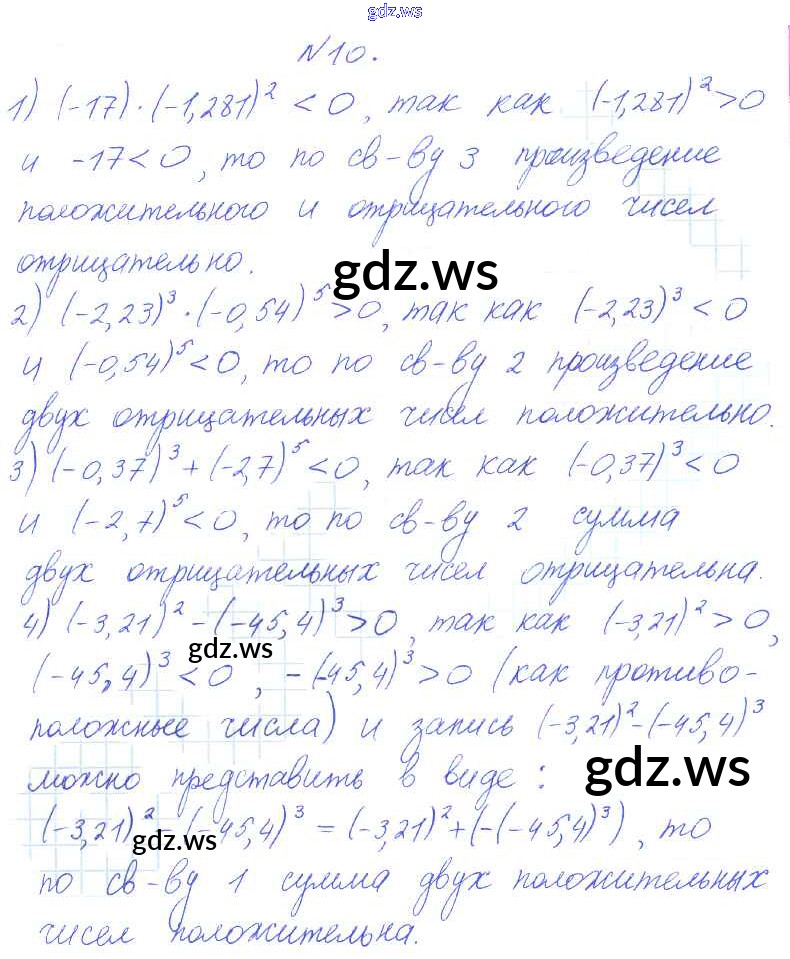 gdz.ws
№10.
1) (-17)·(-1,281)² < 0, так как (-1,281)² > 0
и -17 < 0, то по св-ву 3 произведение
положительного и отрицательного чисел
отрицательно.
gdz.ws
2) (-2,23)³·(-0,54)⁵ > 0, так как (-2,23)³ < 0
и (-0,54)⁵ < 0, то по св-ву 2 произведение
двух отрицательных чисел положительно.
3) (-0,37)³ + (-2,7)⁵ < 0, так как (-0,37)³ < 0
и (-2,7)⁵ < 0, то по св-ву 2 сумма
двух отрицательных чисел отрицательна.
4) (-3,21)² - (-45,4)³ > 0, так как (-3,21)² > 0,
gdz.ws
(-45,4)³ < 0, -(-45,4)³ > 0 (как противо-
положные числа) и запись (-3,21)² - (-45,4)³
можно представить в виде:
gdz.ws
(-3,21)² - (-45,4)³ = (-3,21)² + (-(-45,4)³), то
gdz.ws
по св-ву 1 сумма двух положительных
чисел положительна.